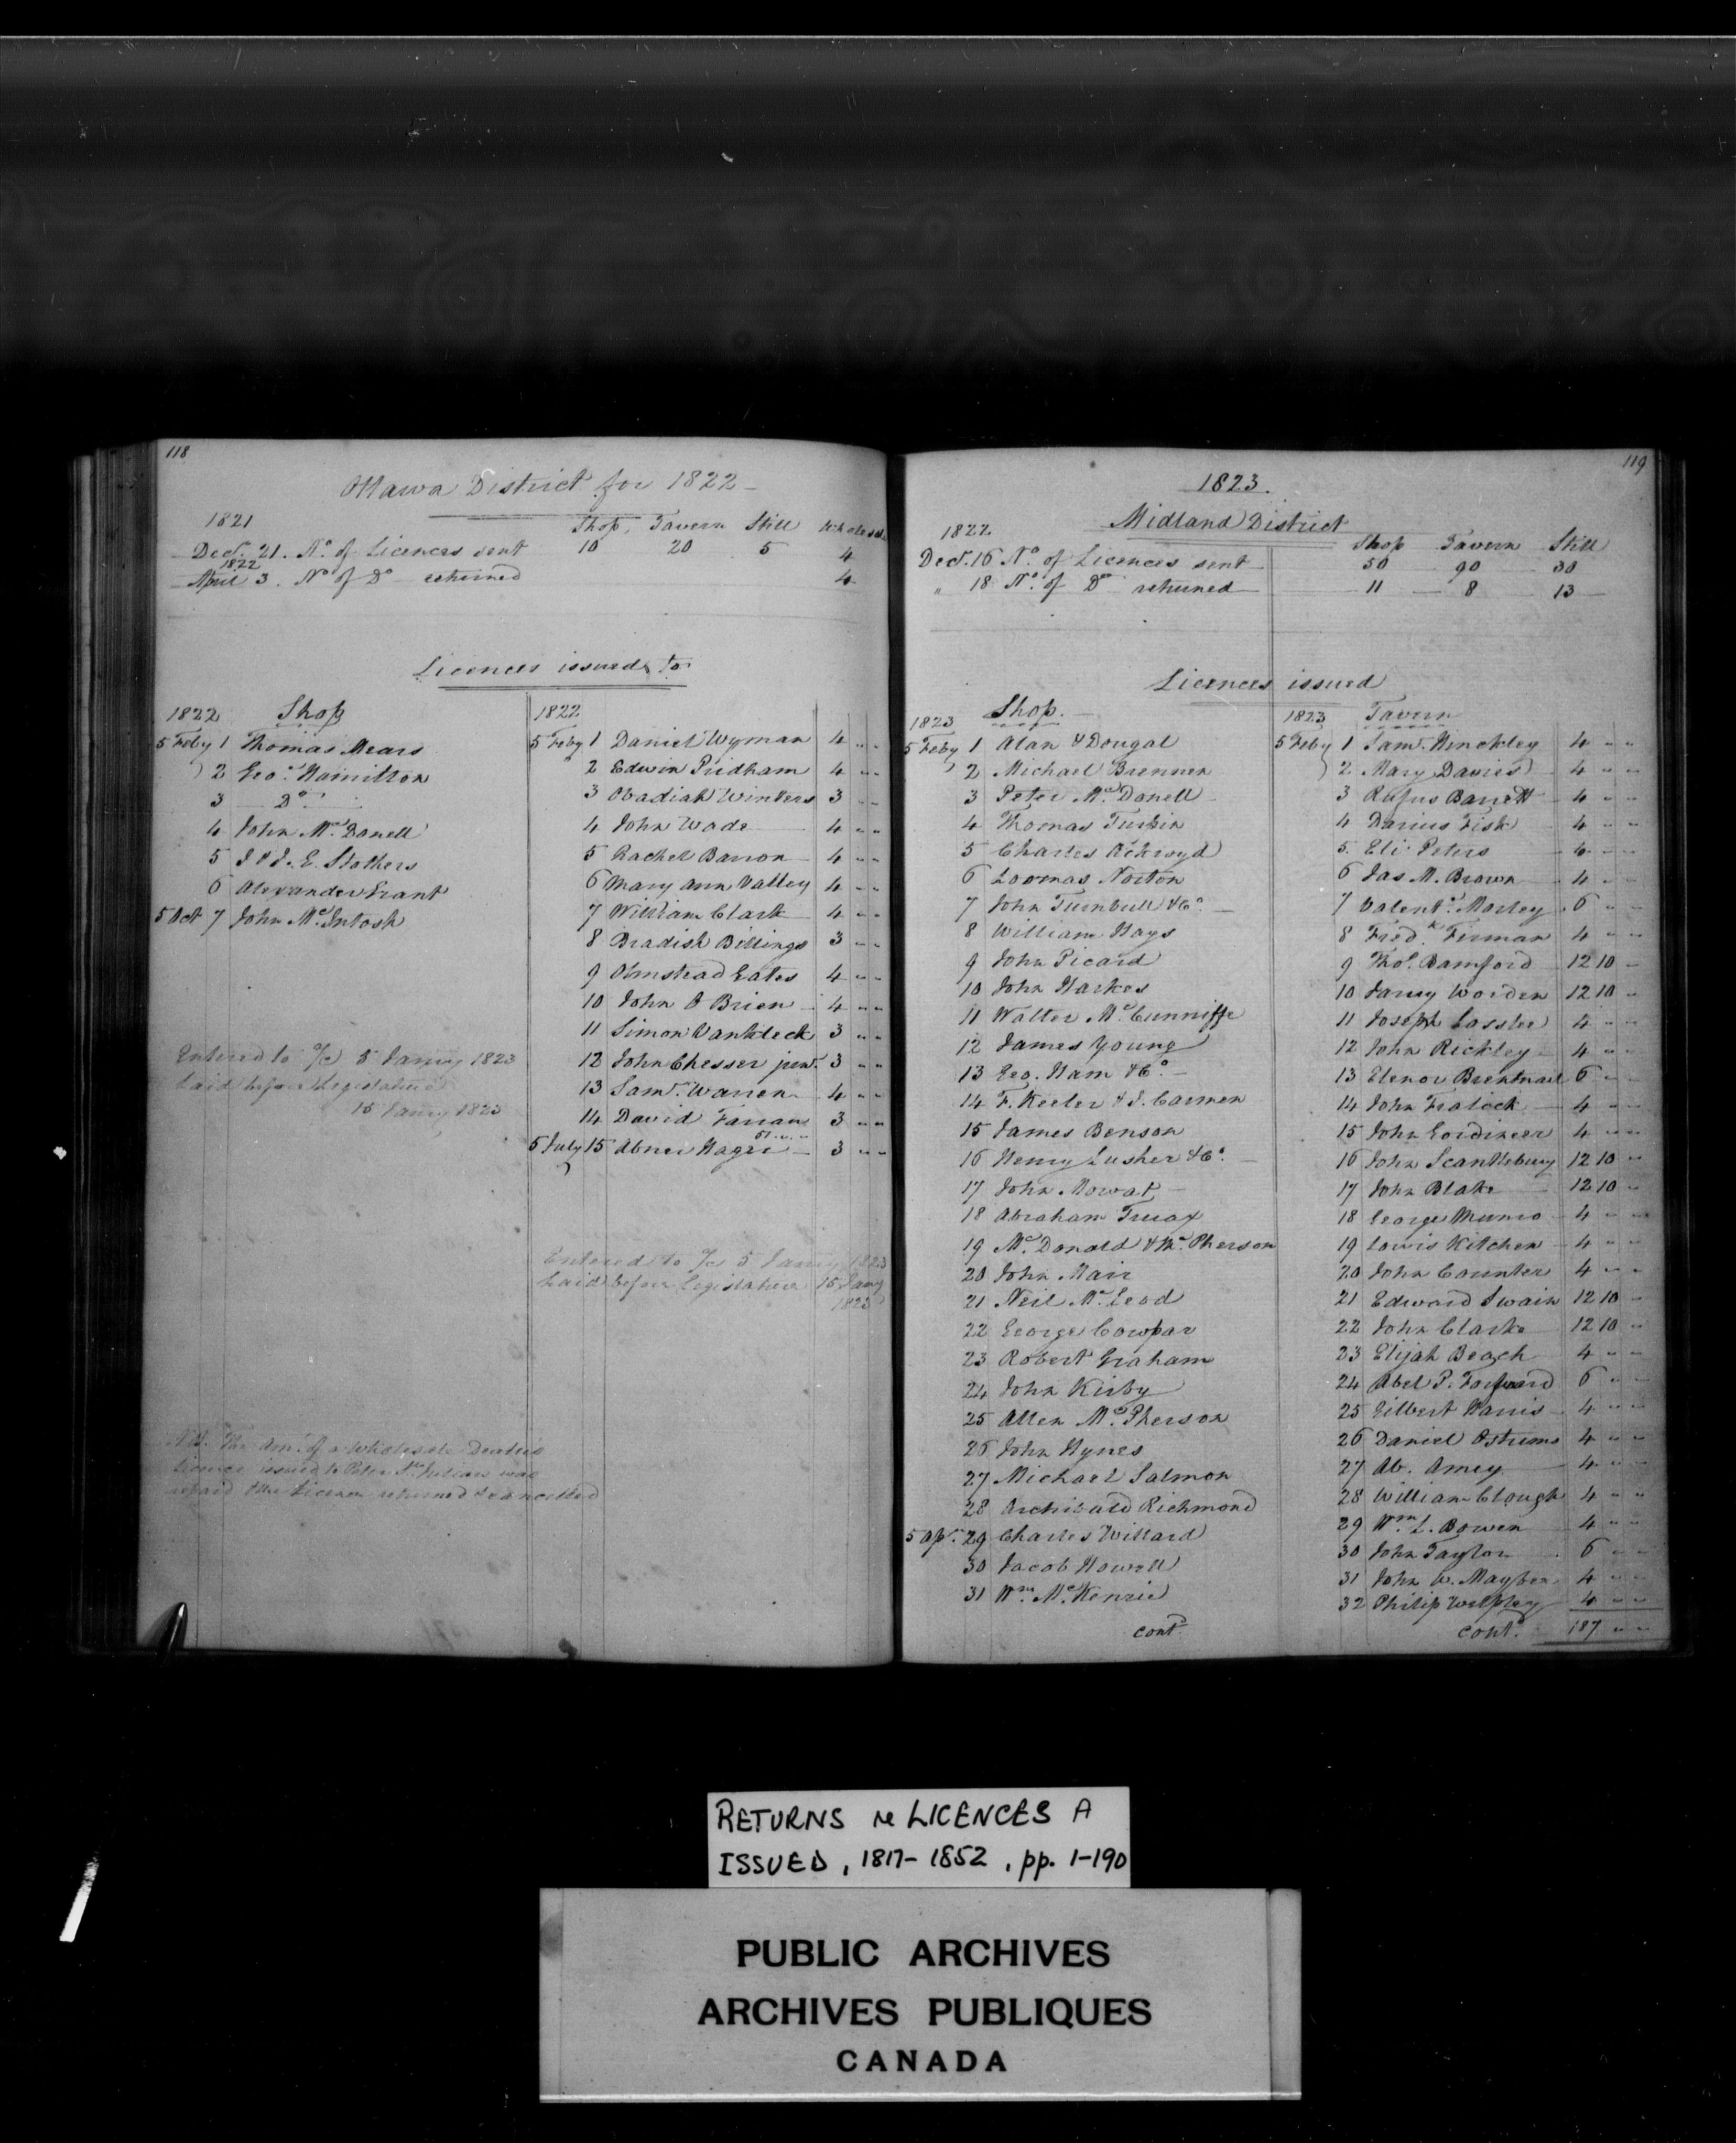 118
Ottawa District for 1822
1821 Shop. Tavern Still Wholesale
Decr. 21. No. of Licences sent 10 20 5 4
1822
April 3. No. of Do returned 4
Licences issued to
1822 Shop
5 Feby 1 Thomas Mears
2 Geo. Hamilton
3 Do
4 John Mc.Donell
5 J & J. E. Stothers
6 Alexander Grant
5 Oct 7 John Mc.Intosh
Entered to a/c 5 Janry 1823
Laid before Legislature
15 Janry 1823
N.B. The Amt. of a Wholesale Dealers
Licence issued to Peter Mc. was
repaid & the Licence returned & cancelled
1822
5 Feby 1 Daniel Wyman 4 " "
2 Edwin Pridham 4 " "
3 Obadiah Winters 3 " "
4 John Wade 4 " "
5 Rachel Barron 4 " "
6 Mary Ann Valley 4 " "
7 William Clark 4 " "
8 Bradish Billings 3 " "
9 Olmstead Gates 4 " "
10 John O Brien 4 " "
11 Simon Vankleck 3 " "
12 John Chesser junr. 3 " "
13 Saml. Warren 4 " "
14 David Farran 3 " "
51 " "
5 July 15 Abner Hager 3 " "
Entered to a/c 5 Janry 1823
Laid before Legislature 15 Janry
1823
119
1823.
Midland District
1822 Shop Tavern Still
Decr. 16 No. of Licences sent 50 90 30
" 18 No. of Do returned 11 8 13
Licences issued
1823 Shop.
5 Feby 1 Alan & Dougal
2 Michael Brennen
3 Peter Mc.Donell
4 Thomas Turkin
5 Charles Ackroyd
6 Loomas Norton
7 John Turnbull & Co.
8 William Hays
9 John Picard
10 John Harkes
11 Walter Mc.Cunniffe
12 James Young
13 Geo. Ham & Co.
14 F. Keeler & J. Carmen
15 James Benson
16 Henry Lusher & Co.
17 John Mowat
18 Abraham Truax
19 Mc.Donald & Mc.Pherson
20 John Mair
21 Neil Mc.Leod
22 George Cowpar
23 Robert Graham
24 John Kirby
25 Allen Mc.Pherson
26 John Hynes
27 Michael Salmon
28 Archibald Richmond
5 Apl. 29 Charles Willard
30 Jacob Howell
31 Wm. Mc.Kenzie
contd.
1823 Tavern
5 Feby 1 Saml. Hinckley 4 " "
2 Mary Davies 4 " "
3 Rufus Barrett 4 " "
4 Darius Fisk 4 " "
5 Eli Peters 6 " "
6 Jas M. Brown 4 " "
7 Valente. Marley 6 " "
8 Fredk. Firman 4 " "
9 Thos. Bamford 12 10 "
10 Jamy Worden 12 10 "
11 Joseph Lasslee 4 " "
12 John Rickley 4 " "
13 Elenor Brentnael 6 " "
14 John Fralick 4 " "
15 John Gordineer 4 " "
16 John Scantlebury 12 10 "
17 John Blake 12 10 "
18 George Munro 4 " "
19 Lowis Kitchen 4 " "
20 John Counter 4 " "
21 Edward Swain 12 10 "
22 John Clarke 12 10 "
23 Elijah Beach 4 " "
24 Abel P. Forward 6 " "
25 Gilbert Harris 4 " "
26 Daniel Ostrums 4 " "
27 Ab. Amey 4 " "
28 William Clough 4 " "
29 Wm. L. Bowen 4 " "
30 John Taylor 6 " "
31 John W. Maybee 4 " "
32 Philip 4 " "
contd. 187 " "
RETURNS re LICENCES A
ISSUED, 1817-1852, pp. 1-190
PUBLIC ARCHIVES
ARCHIVES PUBLIQUES
CANADA